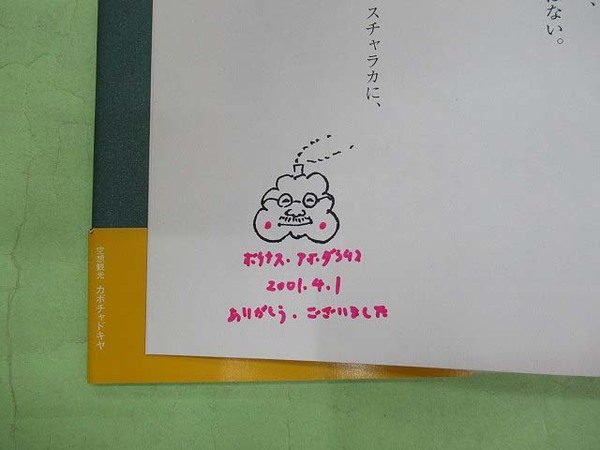 ない。
スチャラカに、
ボケナス.アホ.ダラムス
2001.4.1
ありがとう.ございました
空想観光 カボチャドキヤ